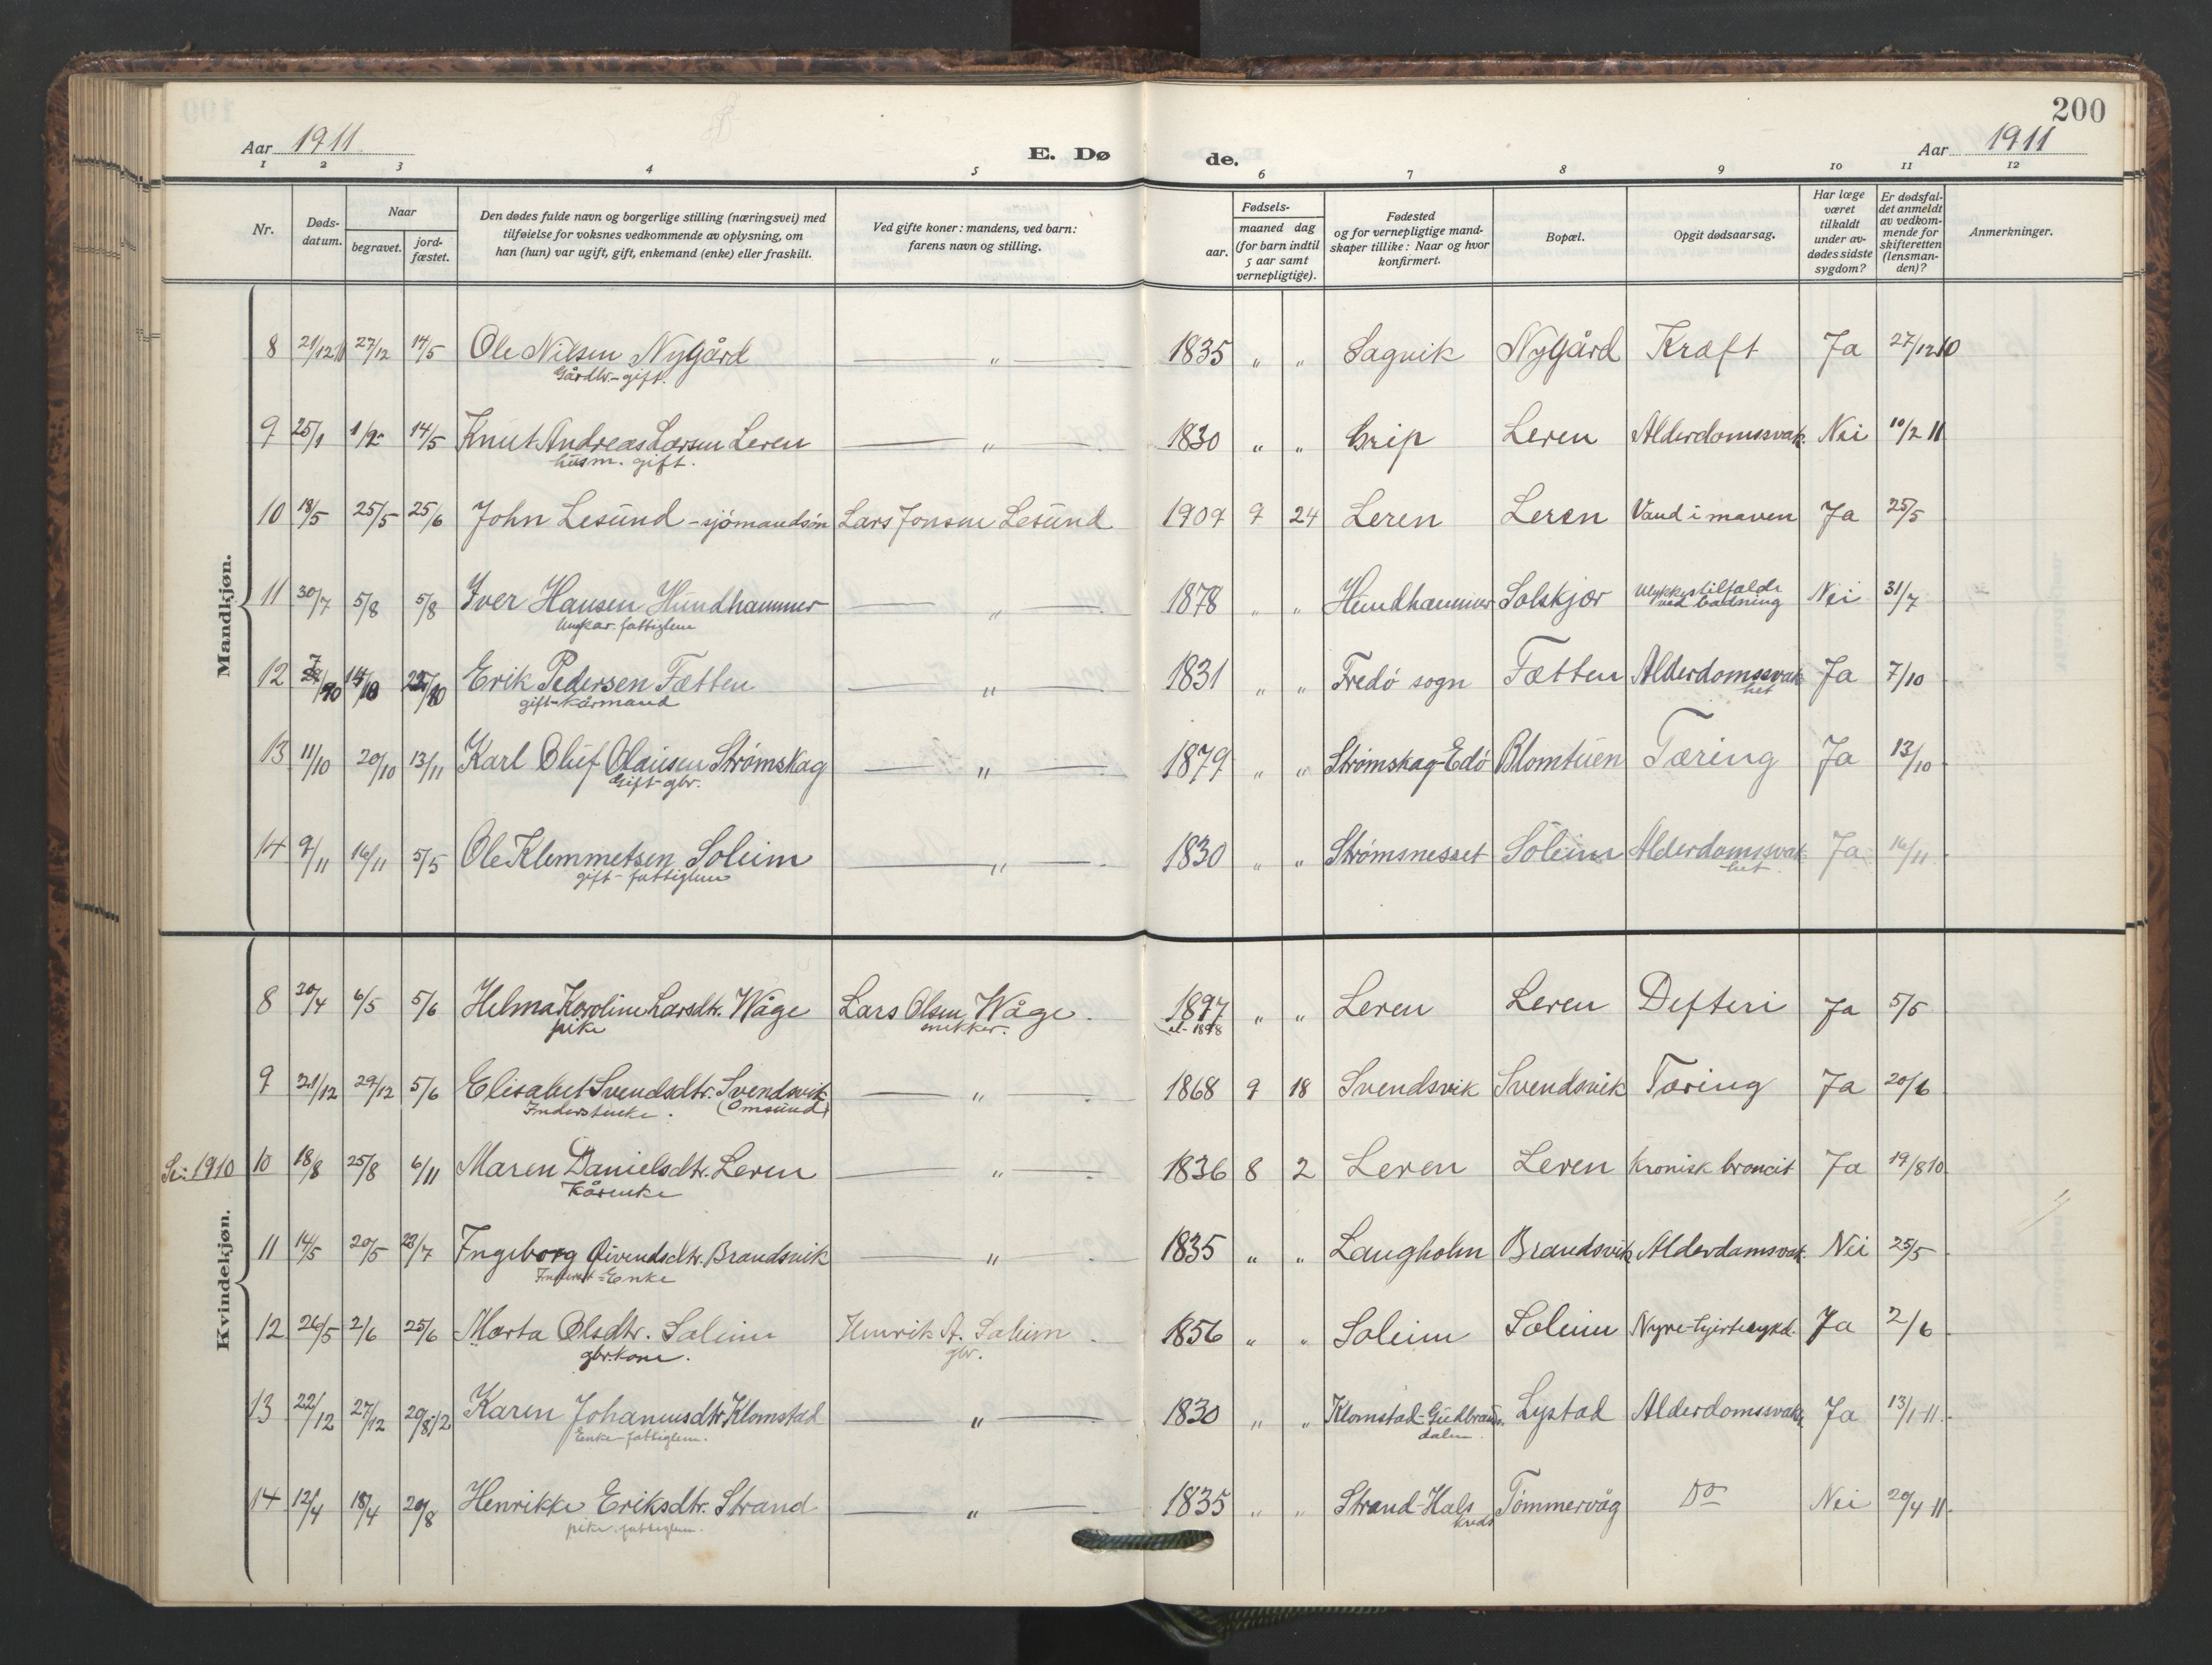 200
Aar 1911 E. Dø de. Aar 1911
1 2 3 4 5 6 7 8 9 10 11 12
Nr. Døds-datum. Naar begravet. jord-fæstet. Den dødes fulde navn og borgerlige stilling (næringsvei) med tilføielse for voksnes vedkommende av oplysning, om han (hun) var ugift, gift, enkemand (enke) eller fraskilt. Ved gifte koner: mandens, ved barn: farens navn og stilling. Fødsels- aar. maaned dag (for barn indtil 5 aar samt vernepligtige). Fødested og for vernepligtige mandskaper tillike: Naar og hvor konfirmert. Bopæl. Opgit dødsaarsag. Har læge været tilkaldt under avdødes sidste sygdom? Er dødsfaldet anmeldt av vedkommende for skifteretten (lensmanden)? Anmerkninger.
Mandkjøn.
8 21/12 27/12 14/5 Ole Nilsen Nygård — „ — 1835 „ „ Sagvik Nygård Kræft Ja 27/12 10
Gårdbr.- gift.
9 25/1 1/2 14/5 Knut Andreas Larsen Leren — „ — 1830 „ „ Grip Leren Alderdomssvak Nei 10/2 11
husm. gift.
10 18/5 25/5 25/6 John Lesund - sjömandsön Lars Jonsen Lesund 1909 9 24 Leren Leren Vand i maven Ja 25/5
11 30/7 5/8 5/8 Iver Hansen Hundhammer — „ — 1878 „ „ Hundhammer Solskjær Ulykkestilfalde ved badning Nei 31/7
Ungkar-fattiglem
12 7/10 14/10 22/10 Erik Pedersen Fætten — „ — 1831 „ „ Fredö sogn Fætten Alderdomssvak het Ja 7/10
gift-kårmand
13 11/10 20/10 13/11 Karl Oluf Olausen Strømskag — „ — 1879 „ „ Strømskag-Edö Blomtuen Tæring Ja 13/10
Gift-gbr.
14 9/11 16/11 5/5 Ole Klemmetsen Soleim — „ — 1830 „ „ Strømsnesset Soleim Alderdomssvak het Ja 16/11
gift - fattiglem
Kvindekjøn.
8 20/4 6/5 5/6 Helma Karoline Larsdtr. Wåge Lars Olsen Wåge. 1897 „ „ Leren Leren Defteri Ja 5/5
pike snekker. el- 1898
9 21/12 29/12 5/6 Elisabet Svendsdtr. Svendsvik — „ — 1868 9 18 Svendsvik Svendsvik Tæring Ja 20/6
Inderstenke. (Omsund)
1910 10 18/8 25/8 6/11 Maren Danielsdtr. Leren — „ — 1836 8 2 Leren Leren Kronisk broncit Ja 19/8 10
Kårenke
11 14/5 20/5 23/7 Ingeborg Eivendsdtr. Brandsvik — „ — 1835 „ „ Langholm Brandsvik Alderdamsvak Nei 25/5
Inderst-Enke
12 26/5 2/6 25/6 Marta Olsdtr. Soleim Henrik A. Soleim 1856 „ „ Soleim Soleim Nyre-hjertesykd. Ja 2/6
gbr.kone. gbr.
13 22/12 27/12 20/8 12 Karen Johannesdtr. Klomstad — „ — 1830 „ „ Klomstad-Gudbrands. dalen. Lystad Alderdomssvakh Ja 13/1-11.
Enke-fattiglem.
14 12/4 18/4 20/8 Henrikke Eriksdtr. Strand — „ — 1835 „ „ Strand-Hals kreds Tömmervåg Do Nei 20/4-11.
pike. fattiglem.